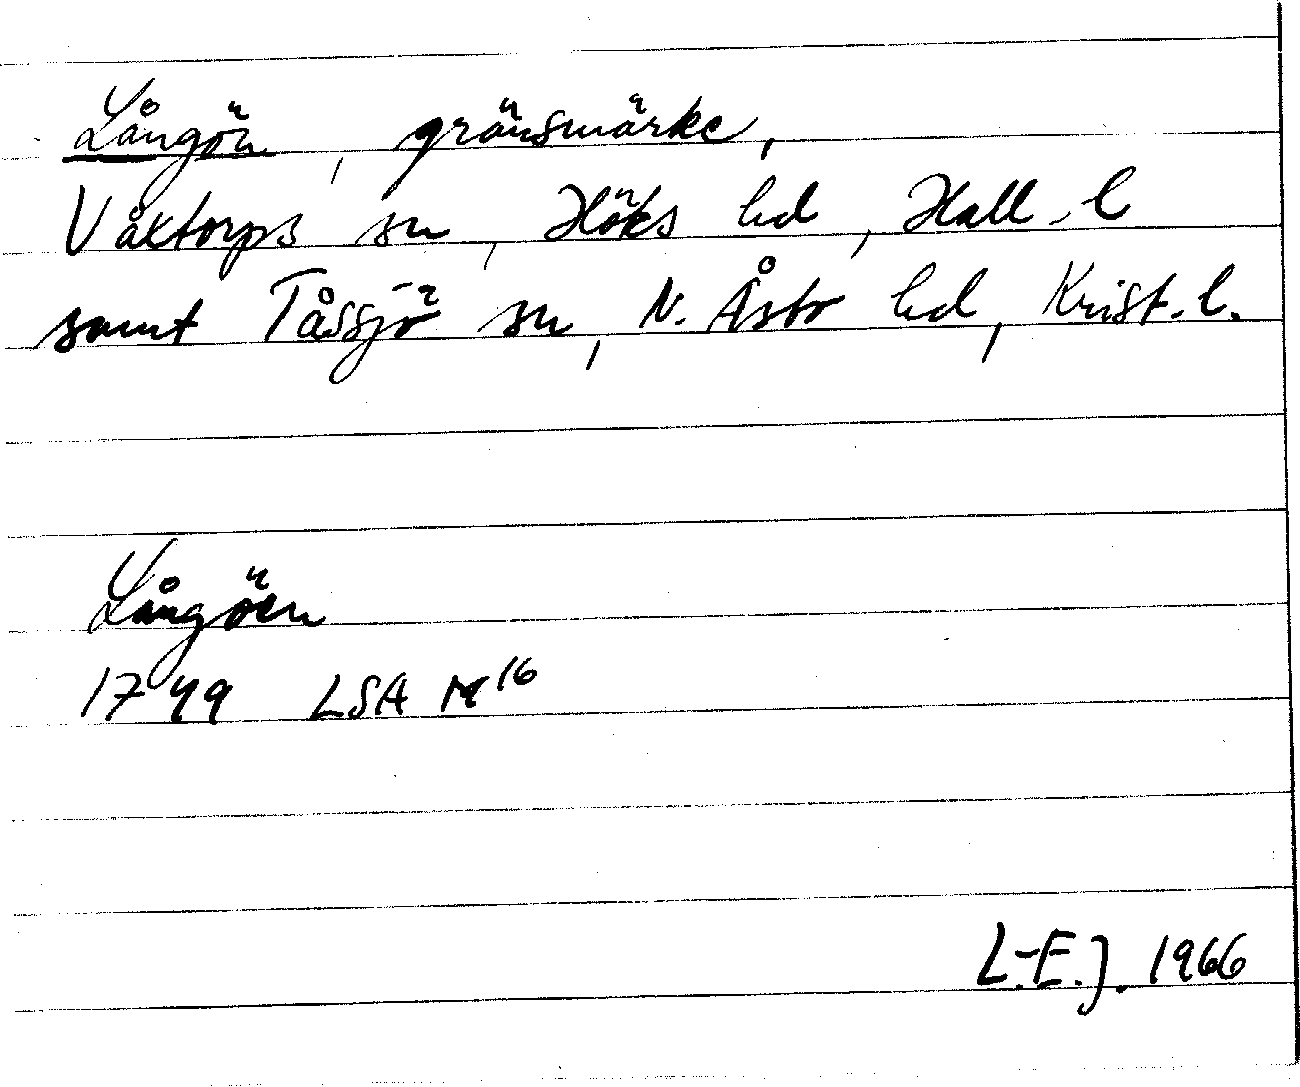 Långön, gränsmärke,
Våxtorps sn, Höks hd, Hall. l
samt Tåssjö sn, N. Åsbo hd, Krist. l.
Långöen
1749 LSA M16
L.-E.J. 1966